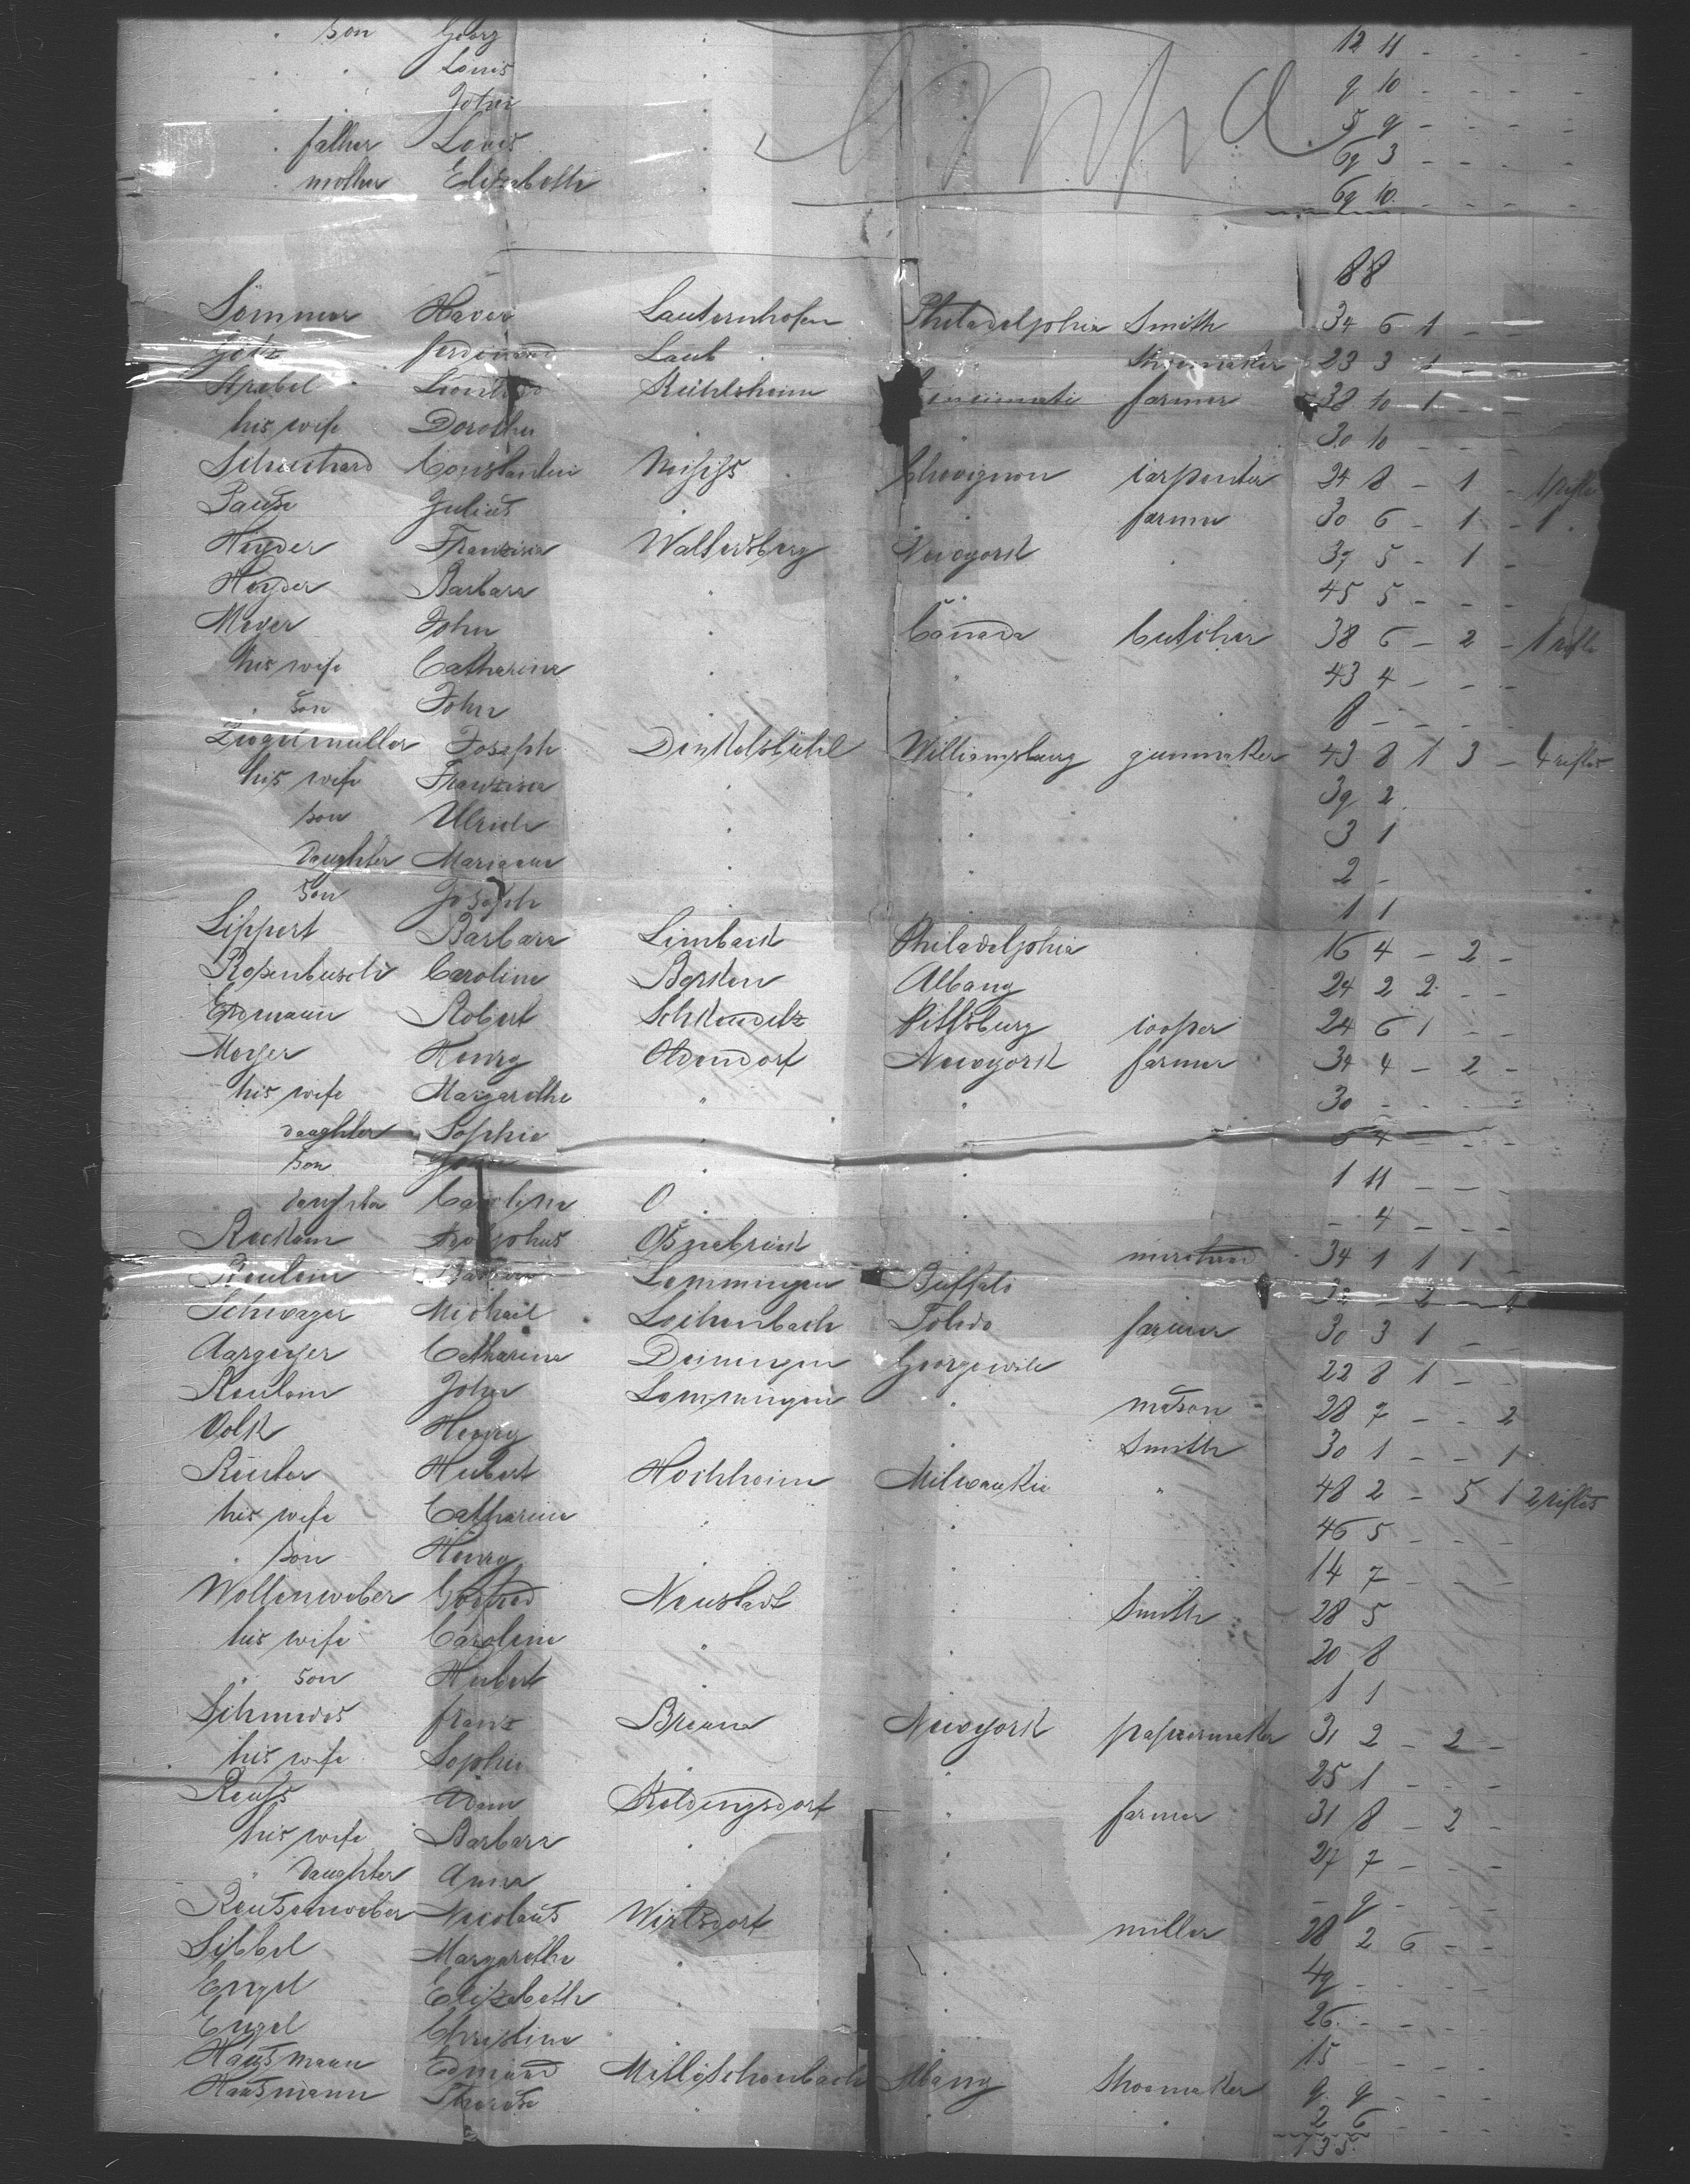 son Georg 12 11 - - -
" Louis 9 10 - - -
" John 5 9 - - -
father Louis 69 3 - - -
mother Elizabeth 69 10 - - -
88
Sommer Xaver Lauternhofen Philadelphia Smith 34 6 1 - -
Götz ferdinand Laub Shoemaker 23 3 1 - -
Strebel Leonhard Cincinnati farmer 38 10 1 - -
his wife Dorothea 30 10 - - -
Schuchard Constantin carpenter 24 8 - 1 - 1 rifle
Julius farmer 30 6 - 1 - 1
Heyder Franzisca Waltersberg Newyork 37 5 - 1 -
Heyder Barbara 45 5 - - -
Meyer John Canada butcher 38 6 - 2 - 1 rifle
his wife Catharina 43 4 - - -
" son John 8 - - - -
Ziegelmüller Joseph Dinkelsbühl Williamsburg gunmaker 43 8 1 3 - 4 rifles
his wife Franzisca 39 2
son Ulrich 3 1
Daughter Mariana 2 -
Son Joseph 1 1
Lippert Barbara Limbach Philadelphia 16 4 - 2 -
Roßenbusch Caroline Borken Albany 24 2 2 - -
Erdmann Robert Schkeuditz Pittsburg cooper 24 6 1 - -
Meyer Henry Oldendorf Newyork farmer 34 4 - 2 -
his wife Margarethe " " 30 - - - -
daughter Sophie 5 4 - - -
son 1 11 - - -
daughter Carolina - 4 - - -
Adolphus Osnebrück merchand 34 1 1 1 -
Reulein Barbara Lemmingen Buffalo
Schwager Michael Leihenbach Toledo farmer 30 3 1 - -
Catharina Deiningen Georgewile 22 8 1 - -
Reulein John Lemmingen " mason 28 7 - - 2
Volk Henry Smith 30 1 - - 1
Reuter Hubert Hochheim Milwaukie " 48 2 - 5 1 2 rifles
his wife Catharina 46 5 - - -
" son Henry 14 7 - - -
Wollenweber Gotfred Neustadt Smith 28 5
his wife Caroline " 20 8
" son Hubert 1 1
Schmedes franz Newyork papiermaker 31 2 - 2 -
his wife Sophie 25 1 - - -
Reuß Adam farmer 31 8 - 2 -
his wife Barbara 27 7 - - -
" Daughter Anna - 9 - - -
Reutsenweber Nicolaus Wirtsdorf miller 28 2 6 - -
Sibbel Margarethe 49 - - - -
Engel Elizabeth 26 - - - -
Engel Christina 15 - - - -
Hausmann Edmund Albany Shoemaker 9 9 - - -
Hausmann Therese 2 6 - - -
135